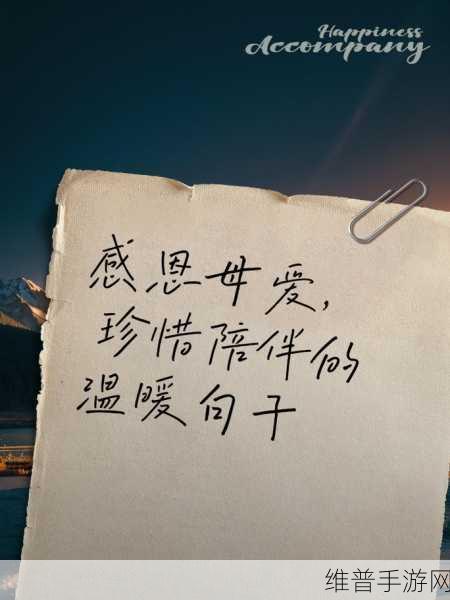 Happiness
Accompany
感恩母爱，
珍惜陪伴的
温暖句子
维普手游网